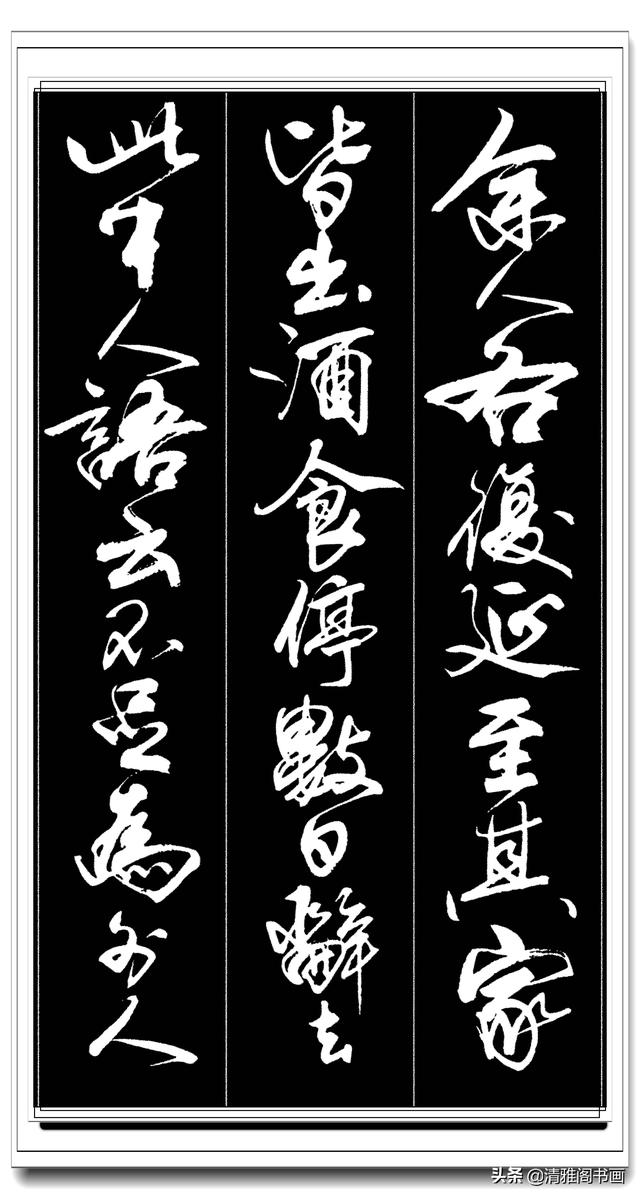 余人各復延至其家
皆出酒食停數日辭去
此中人語云不足為外人
头条 @清雅阁书画